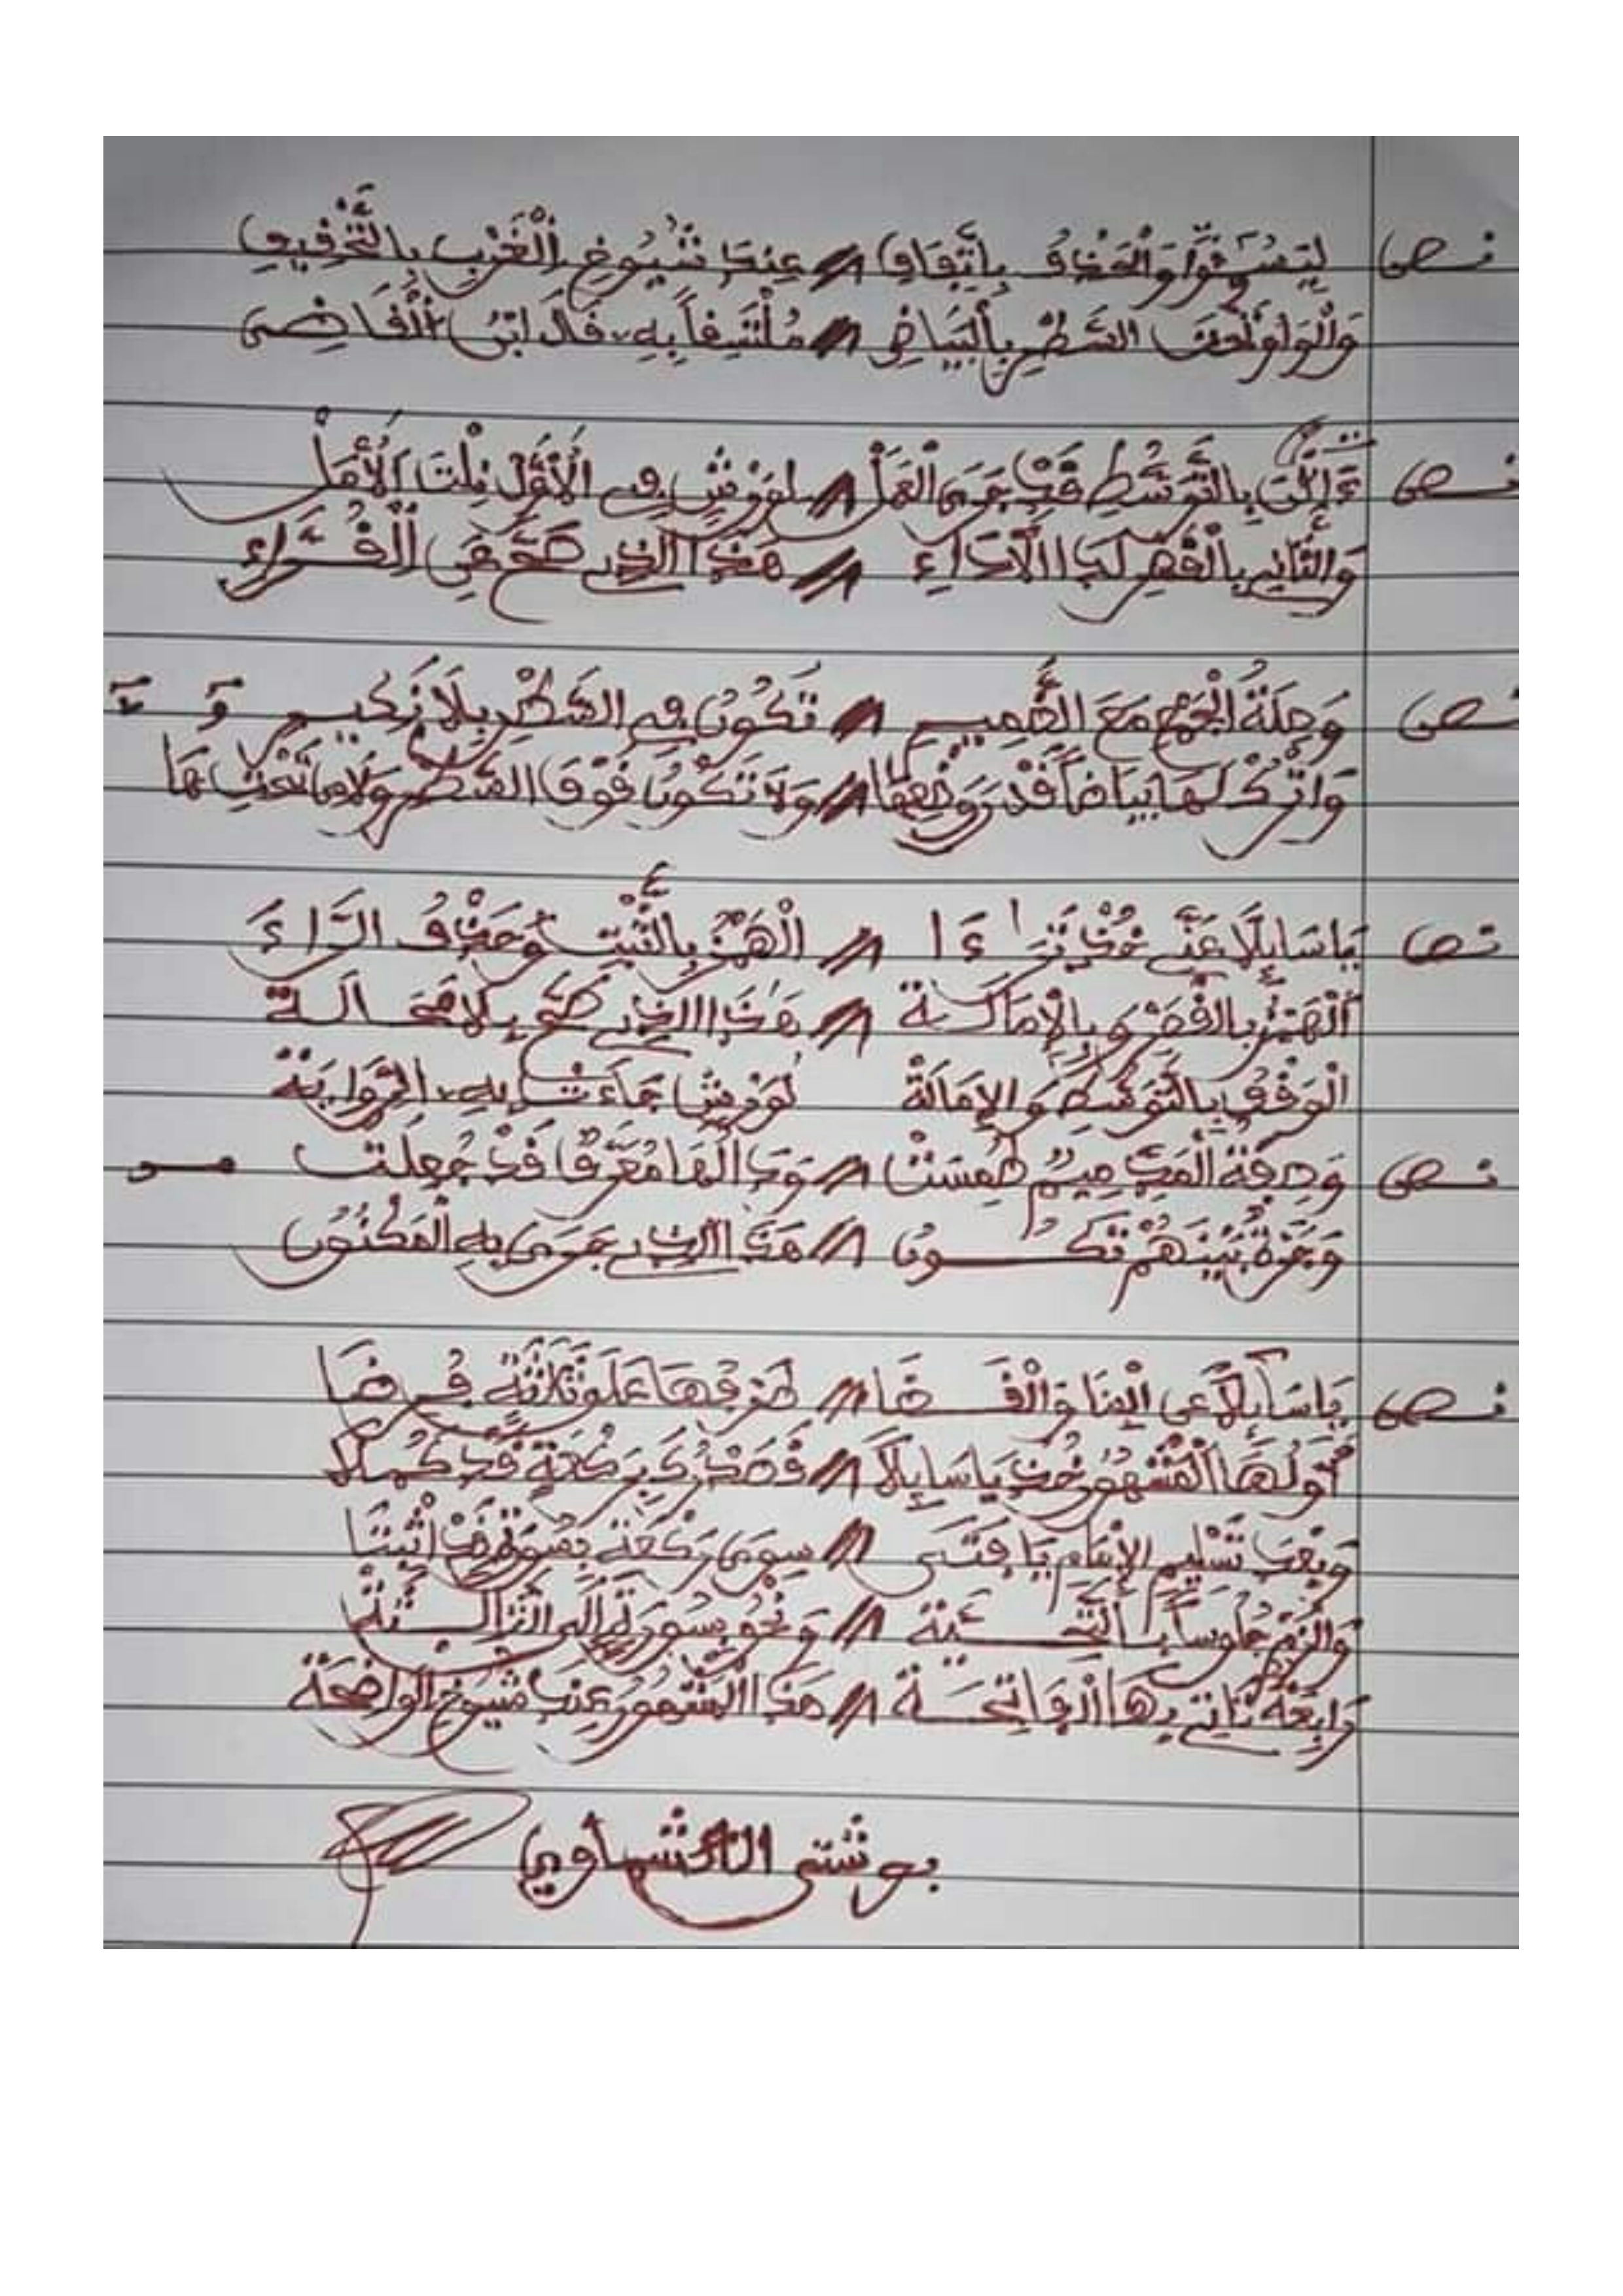 نص لِيَسُــَٔـواْ وَالْحَذْفُ بِاتِّفَاقِ // عِندَ شُيُوخِ الْغَرْبِ بِالتَّحْقِيقِ
وَالْوَاوُ تَحْتَ السَّطْرِ بِالْبَيَاضِ // مُلْتَصِفاً بِهِ قَالَ ابْنُ الْقَاضِى
نص ءَآلَٰنَ بِالتَّوَسُّطِ قَدْ جَرَى الْعَمَلْ // لِوَرْشٍ فِى الْأَوَّلِ نِلْتَ الْأَمَلْ
وَالثَّانِى بِالْقَصْرِ لَدَا الْأَدَاءِ // هَذَا الذِى صَحَّ عَنِ الْقُرَّاءِ
نص وَصِلَةُ الْجَمْعِ مَعَ الضَّمِيرِ // تَكُونُ فِى السَّطْرِ بِلَا نَكِيرِ
وَاتْرُكْ لَهَا بَيَاضاً قَدْرَ وَضْعِهَا // وَلَا تَكُونُ فَوْقَ السَّطْرِ وَلَا مَا تَحْتَهَا
نص يَا سَائِلًا عَنِّى خُذْ تَرَٰءَا // الْهَمْزُ بِالثَّبْتِ وَحَذْفُ الرَّاءَ
الْهَمْزُ بِالْقَصْرِ وَبِالْإِمَالَـةَ // هَذَا الذِى صَحَّ بِلَا مَحَـالَـةَ
الْوَقْفُ بِالتَّوَسُّطِ وَالْإِمَالَةْ لِوَرْشٍ جَاءَتْ بِهِ الرِّوَايَةْ
نص وَصِفَةُ الْمَدِّ مِيمٌ طُمِسَتْ // وَدَالُهَا مُعَرَّقًا قَدْ جُعِلَتْ
وَجَرَّةٌ بَيْنَهُمْ تَكُــونُ // هَذَا الذِى جَرَى بِهِ الْمَكْنُونُ
نص يَا سَآئِلًا عَنِ الْبِنَا وَالْقَــضَا // طُرُقُهَا عَلَى ثَلَاثَةٍ فُــرِضَا
أَوَّلُهَا الْمَشْهُورُ خُذْ يَا سَائِلَا // مُدْرِكَ رَكْعَةٍ قَدْ كَمُلَا
وَبَعْدَ تَسْلِيمِ الْإِمَامِ يَا فَتَـى // سِوَى رَكْعَةٍ بِسُورَةٍ قَدْ أَثْبَتَا
وَالْزَمْ جُلُوساً بِـالتَّحِـيَّةْ // وَنَحْوُ سُورَةٍ إِلَى الثَّالِـثَةْ
رَابِعَةٌ تَأْتِى بِهَا الْفَاتِحَـةْ // هَذَا الْمَشْهُورُ عِندَ شُيُوخِ الْوَاضِحَةْ
بوشتى